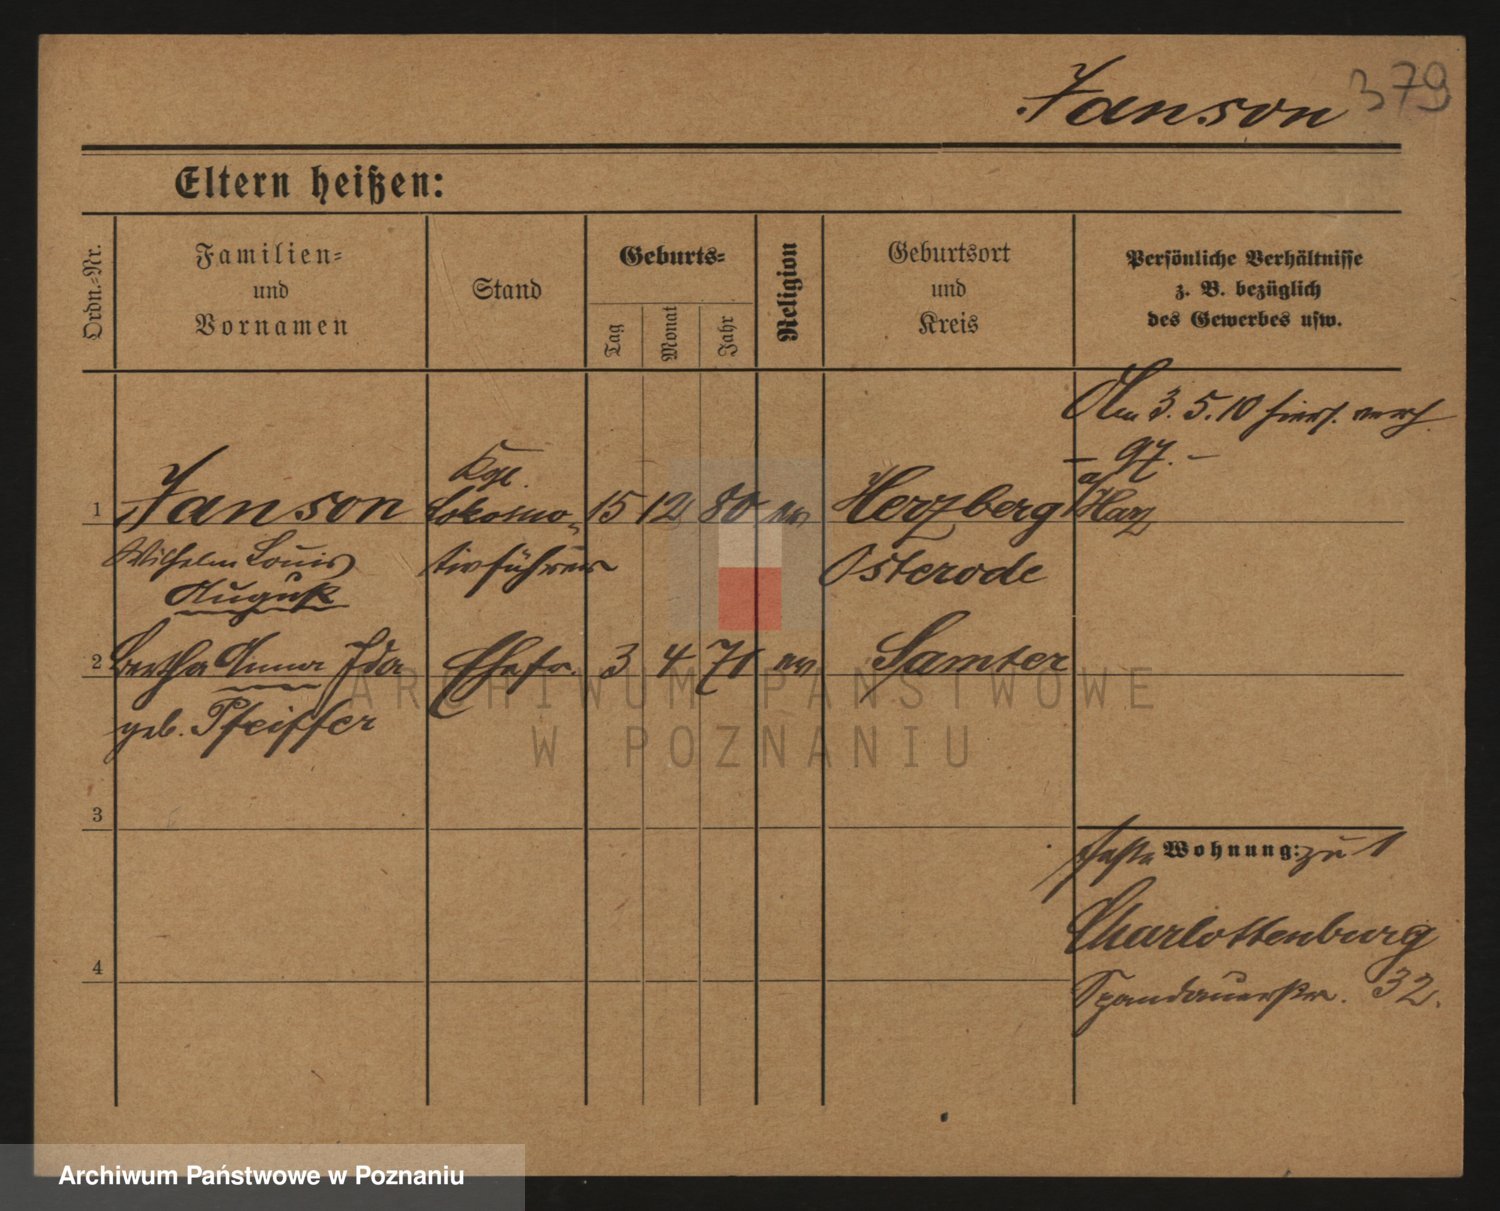 Janson 379
Eltern heißen:
Ordn.-Nr.
Familien-
und
Vornamen
Stand
Geburts-
Tag
Monat
Jahr
Religion
Geburtsort
und
Kreis
Persönliche Verhältnisse
z. B. bezüglich
des Gewerbes usw.
Am 3. 5. 10 hiers. verh.
Kgl.
1 Janson Lokomo- 15 12 80 ev Herzberg a/Harz
Wilhelm Louis tivführer Osterode
August
2 Bertha Anna Ida Ehefr. 3 4 71 ev Samter
geb. Pfeiffer
ARCHIWUM PAŃSTWOWE
W POZNANIU
3
Wohnung: zu 1
Charlottenburg
4
Spandauerstr. 32.
Archiwum Państwowe w Poznaniu